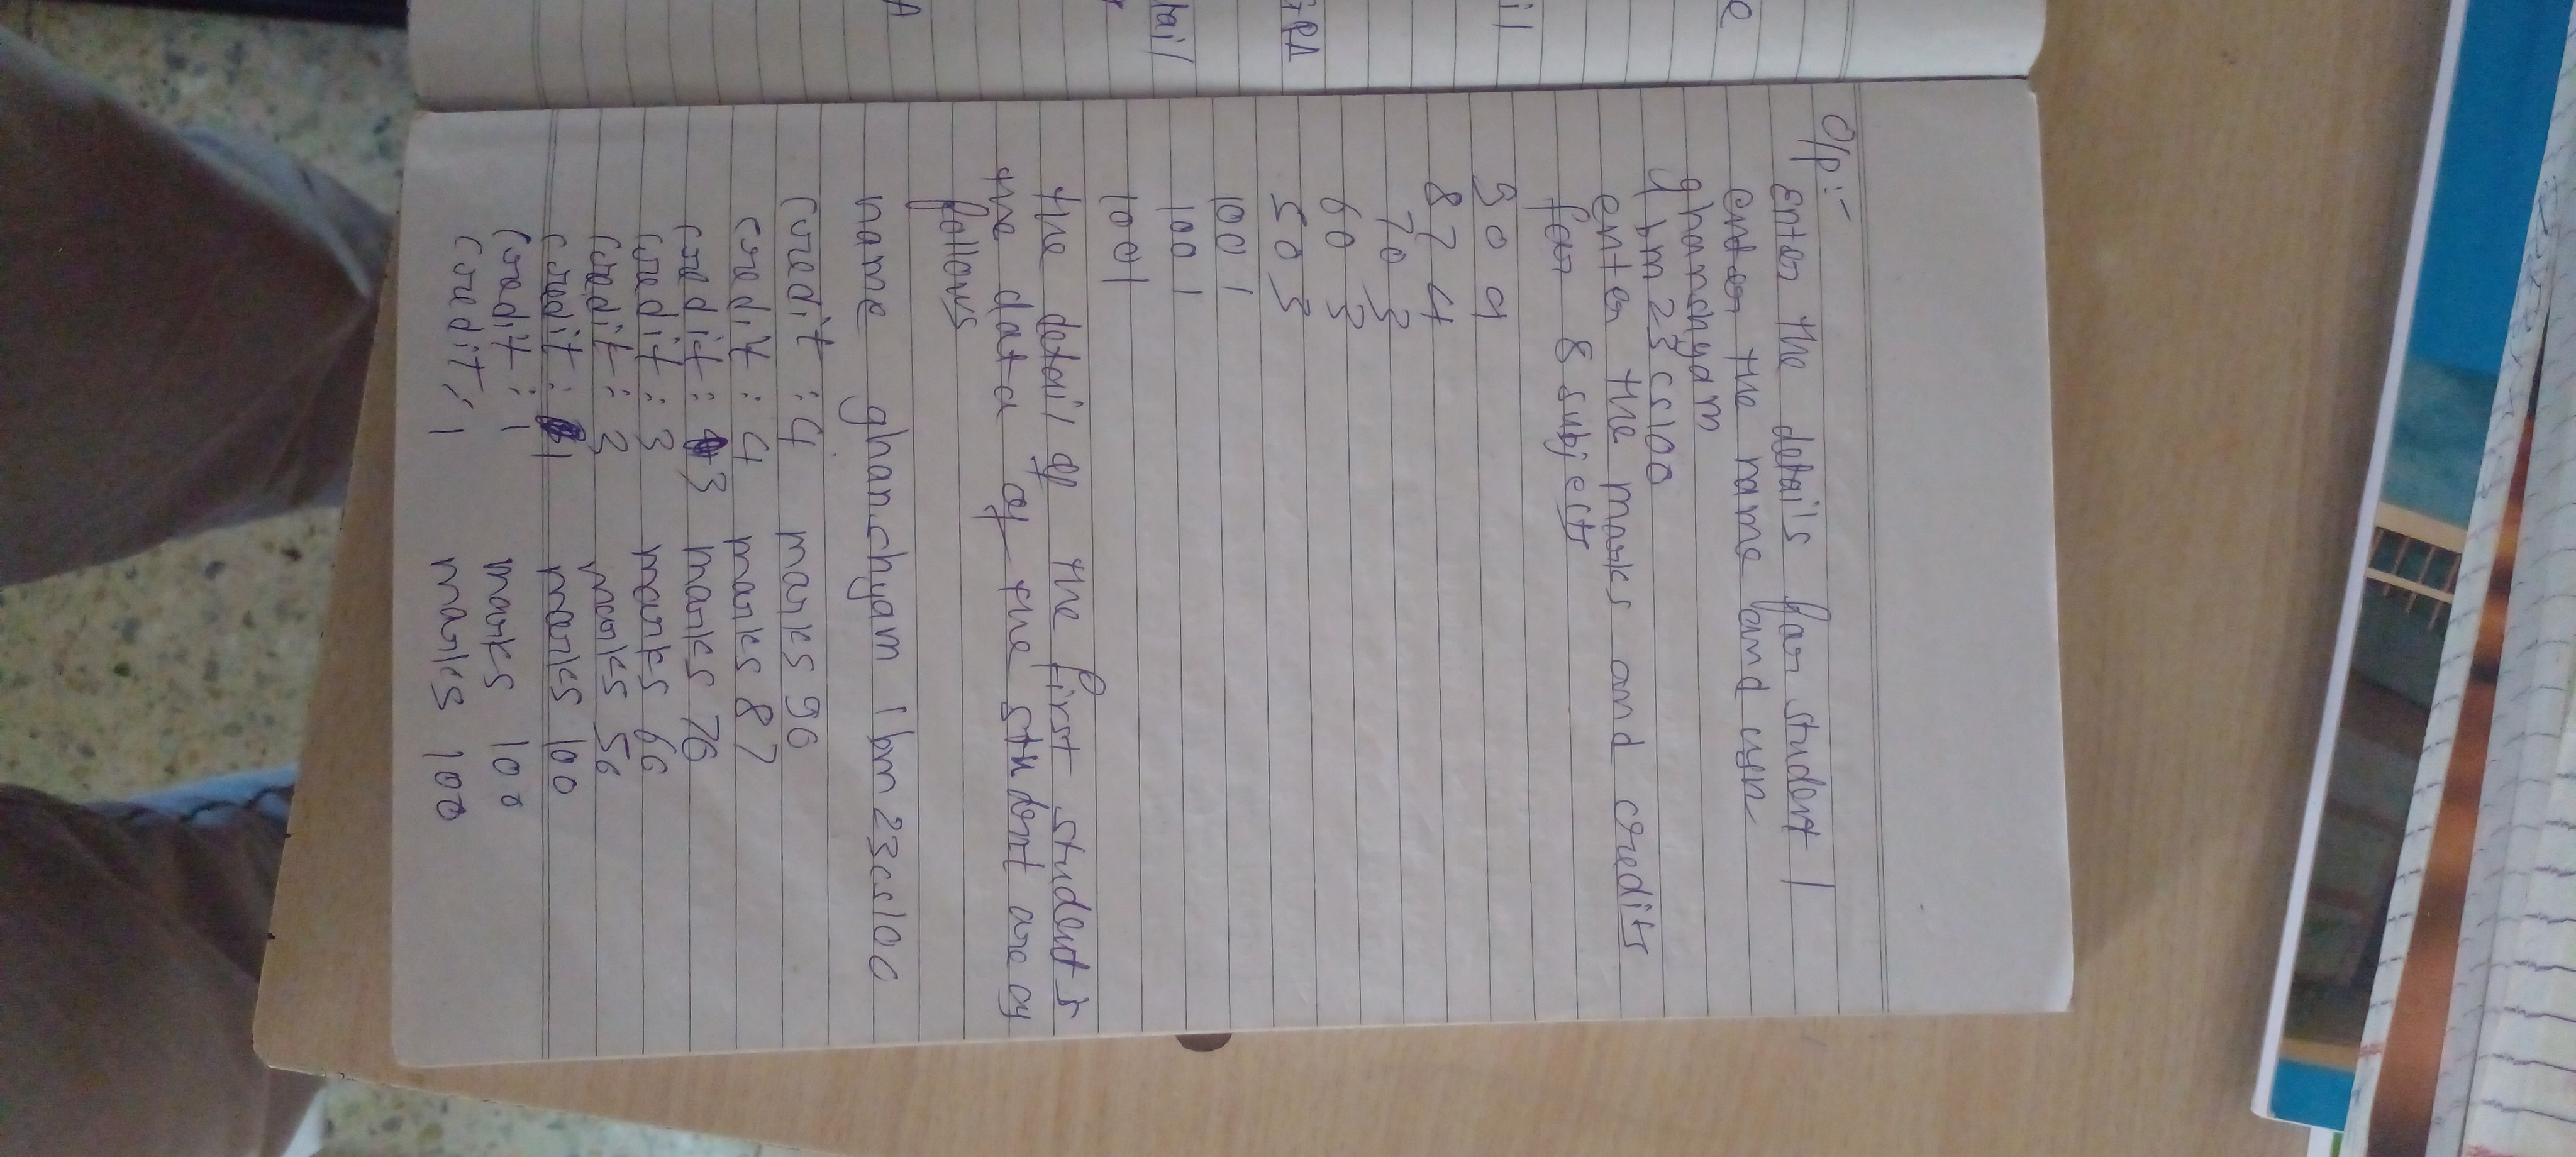 e
il
GPA
tail
A
O/p:-
Enter the details for student 1
enter the name and usn
ghanchyam
1bm23cs100
enter the marks and credits
for 8 subjects
90 4
87 4
70 3
60 3
50 3
100 1
100 1
100 1
the detail of the first student is
the data of the student are as
follows
name ghanchyam 1bm23cs100
credit : 4 marks 90
credit : 4 marks 87
credit : 3 marks 70
credit : 3 marks 60
credit : 3 marks 50
credit : 1 marks 100
credit : 1 marks 100
credit : 1 marks 100